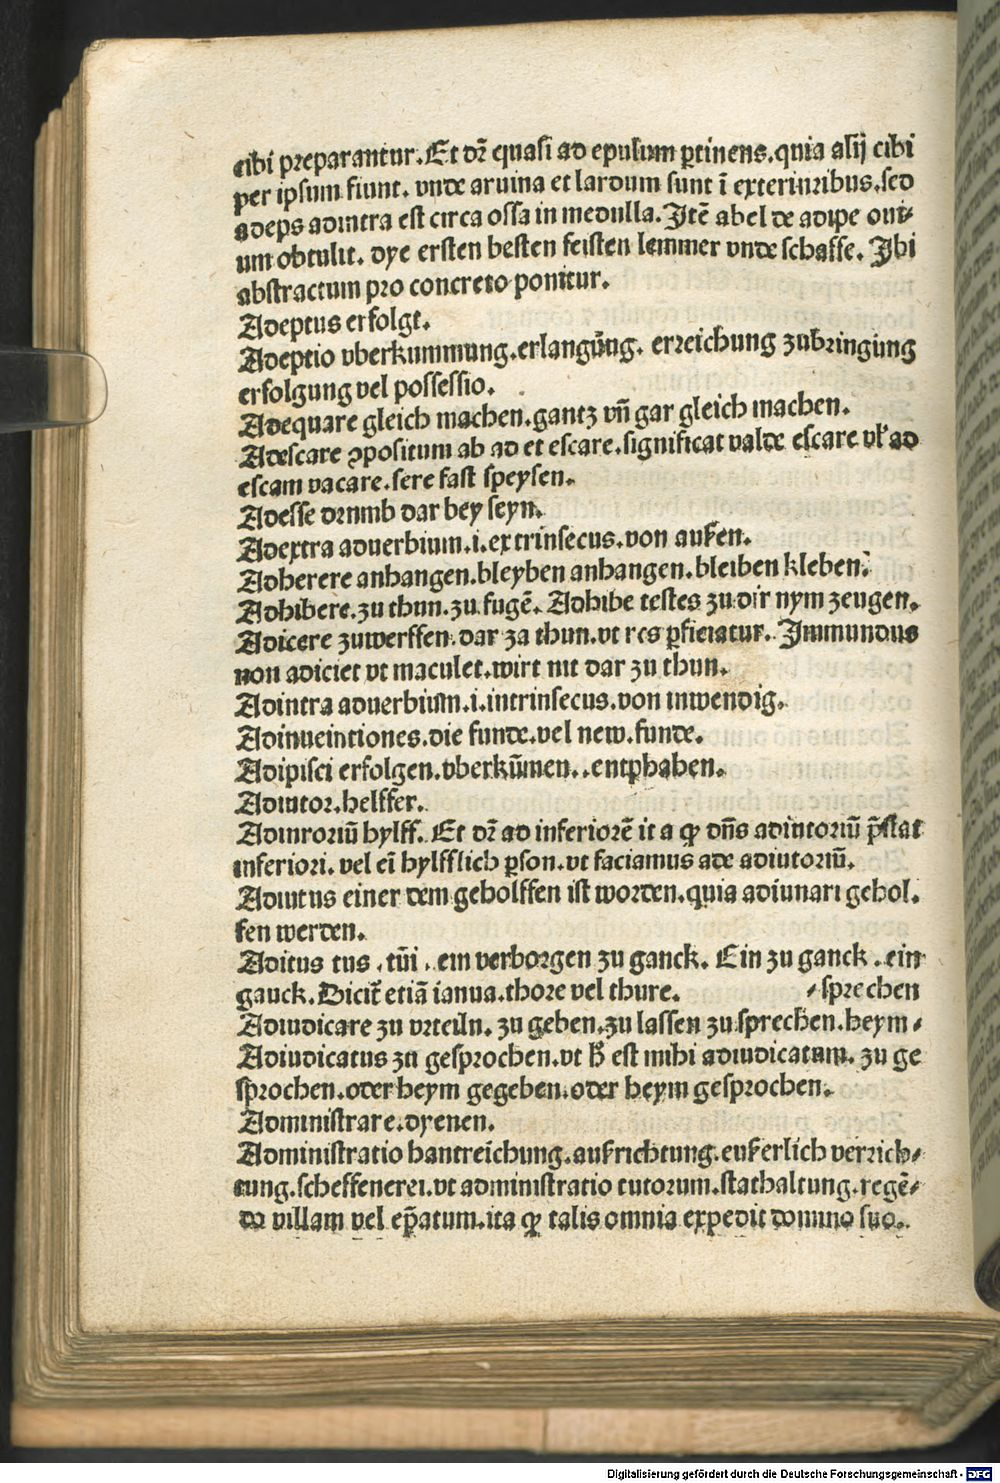 cibi preparantur. Et dr̄ quasi ad epulum ꝑtinens. quia alij cibi
per ipsum fiunt. vnde aruina et lardum sunt ī exterinribus. sed
adeps adintra est circa ossa in medulla. Itē abel de adipe oui⸗
um obtulit. dye ersten besten feisten lemmer vnde schaffe. Ibi
abstractum pro concreto ponitur.
Adeptus erfolgt.
Adeptio vberkummung. erlangūng. erreichung zubringung
erfolgung vel possessio.
Adequare gleich machen. gantz vñ gar gleich machen.
Adescare ꝯpositum ab ad et escare. significat valde escare vl' ad
escam vacare. sere fast speysen.
Adesse drnmb dar bey seyn.
Adextra aduerbium. i. extrinsecus. von aussen.
Adherere anhangen. bleyben anhangen. bleiben kleben.
Adhibere. zu thun. zu fugē. Adhibe testes zu dir nym zeugen.
Adicere zuwerffen. dar za thun. vt res ꝑficiatur. Immundus
non adiciet vt maculet. wirt nit dar zu thun.
Adintra aduerbium. i. intrinsecus. von inwendig.
Adinueintiones. die funde. vel new. funde.
Adipisci erfolgen. vberkūmen. . entphahen.
Adiutor. helffer.
Adinroriū hylff. Et dr̄ ad inferiorē it a ꝙ dn̄s adiutoriū p̄stat
inferiori. vel eī hylfflich ꝑson. vt faciamus ade adiutoriū.
Adiutus einer dem geholffen ist worden. quia adiunari gehol.
fen werden.
Aditus tus. tūi. ein verborgen zu ganck. Ein zu ganck. ein
gauck. Dicit̄ etiā ianua. thore vel thure. ⸗sprechen
Adiudicare zu vrteiln. zu geben. zu lassen zu sprechen. heym⸗
Adiudicatus zu gesprochen. vt h̄ est mihi adiudicatum. zu ge
sprochen. oder heym gegeben. oder heym gesprochen.
Administrare. dyenen.
Administratio hantreichung. außrichtung. eußerlich verrich⸗
tung. scheffenerei. vt administratio tutorum. stathaltung. regē⸗
do villam vel ep̄atum. ita ꝙ talis omnia expedit domino suo.
Digitalisierung gefördert durch die Deutsche Forschungsgemeinschaft - DFG